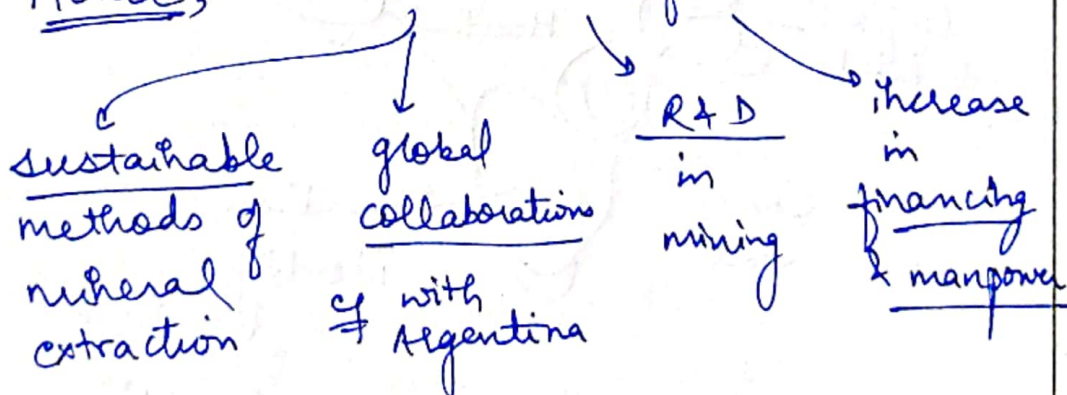 sustainable
methods of
mineral
extraction
global
collaborations
eg with
Argentina
R & D
in
mining
increase
in
financing
& manpower